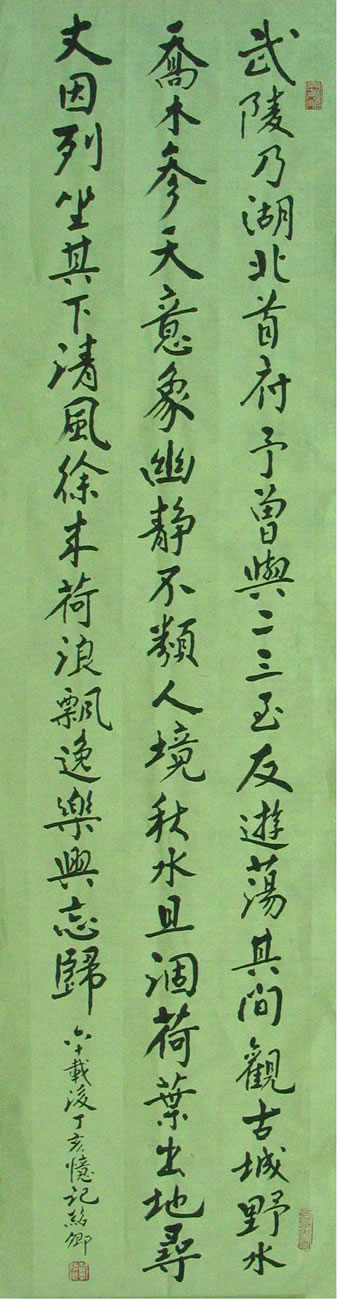 武陵乃湖北首府予曾與二三至友遊蕩其間觀古城野水
喬木參天意象幽靜不類人境秋水且涸荷葉出地尋
丈因列坐其下清風徐来荷浪飄逸樂興忘歸
六十載後丁亥憶記紹卿